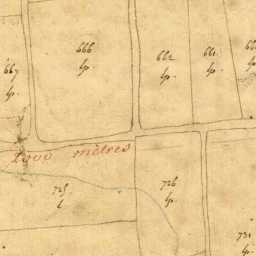 666
lp.
662
lp.
661
lp.
667
lp.
2000 mètres
725
l
726
lp.
731
lp.